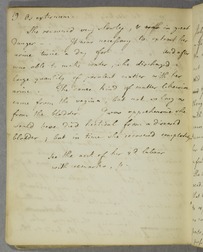 She recovered very slowly, & was in great
danger. It was necessary to extract her
urine twice a day for and after
was able to make water, she discharged a
large quantity of purulent matter with her
urine. The same kind of matter likewise
came from the vagina, but not so long as
from the bladder. I was apprehensive she
would have died hectical from a diseased
bladder, but in time she recovered completely.
See the rest of her 2d labour
with remarks, p.